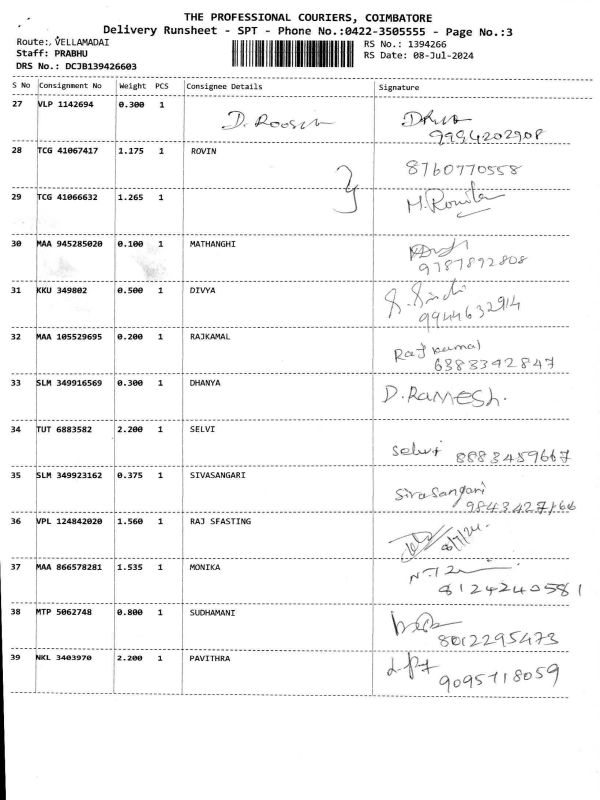 THE PROFESSIONAL COURIERS, COIMBATORE
Delivery Runsheet - SPT - Phone No.:0422-3505555 - Page No.:3
Route: VELLAMADAI RS No.: 1394266
Staff: PRABHU RS Date: 08-Jul-2024
DRS No.: DCJB139426603
S No Consignment No Weight PCS Consignee Details Signature
27 VLP 1142694 0.300 1
9994202908
28 TCG 41067417 1.175 1 ROVIN
8760770558
29 TCG 41066632 1.265 1
30 MAA 945285020 0.100 1 MATHANGHI
9787892808
31 KKU 349802 0.500 1 DIVYA
9944632914
32 MAA 105529695 0.200 1 RAJKAMAL
Rajkumal
6383342847
33 SLM 349916569 0.300 1 DHANYA D.RAMESh.
34 TUT 6883582 2.200 1 SELVI
Selvi 8883459667
35 SLM 349923162 0.375 1 SIVASANGARI
Sivasangari
36 VPL 124842020 1.560 1 RAJ SFASTING
8/7/24
37 MAA 866578281 1.535 1 MONIKA
8124240581
38 MTP 5062748 0.800 1 SUDHAMANI
8012295473
39 NKL 3403970 2.200 1 PAVITHRA
9095718059